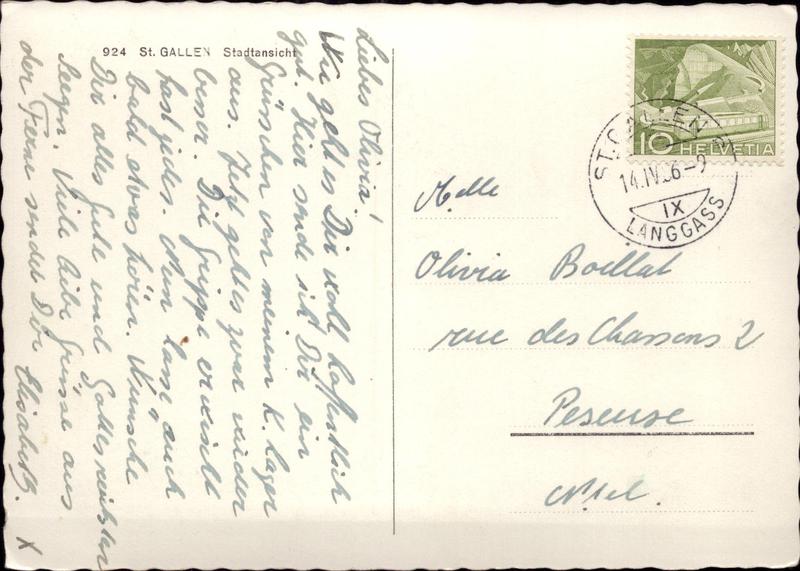 924 St. GALLEN Stadtansicht
Liebes Olivia!
Wie geht es Dir wohl hoffentlich
gut. Hier sende ich Dir ein
Grüsschen von meinem K. Lager
aus. Jetzt geht es zwar wieder
besser. Die Grippe erwischt
fast jedes. Nun lass auch
bald etwas hören. Wünsche
Dir alles Gute und Gottes reichster
Seegn. Viele liebe Grüsse aus
der Ferne sendet Dir Elisabeth.
X
10 HELVETIA
ST. GALLEN
14.IV.56-9
IX
LANGGASS
Melle
Olivia Boillat
rue des Chassons 2
Peseuse
Ntel.